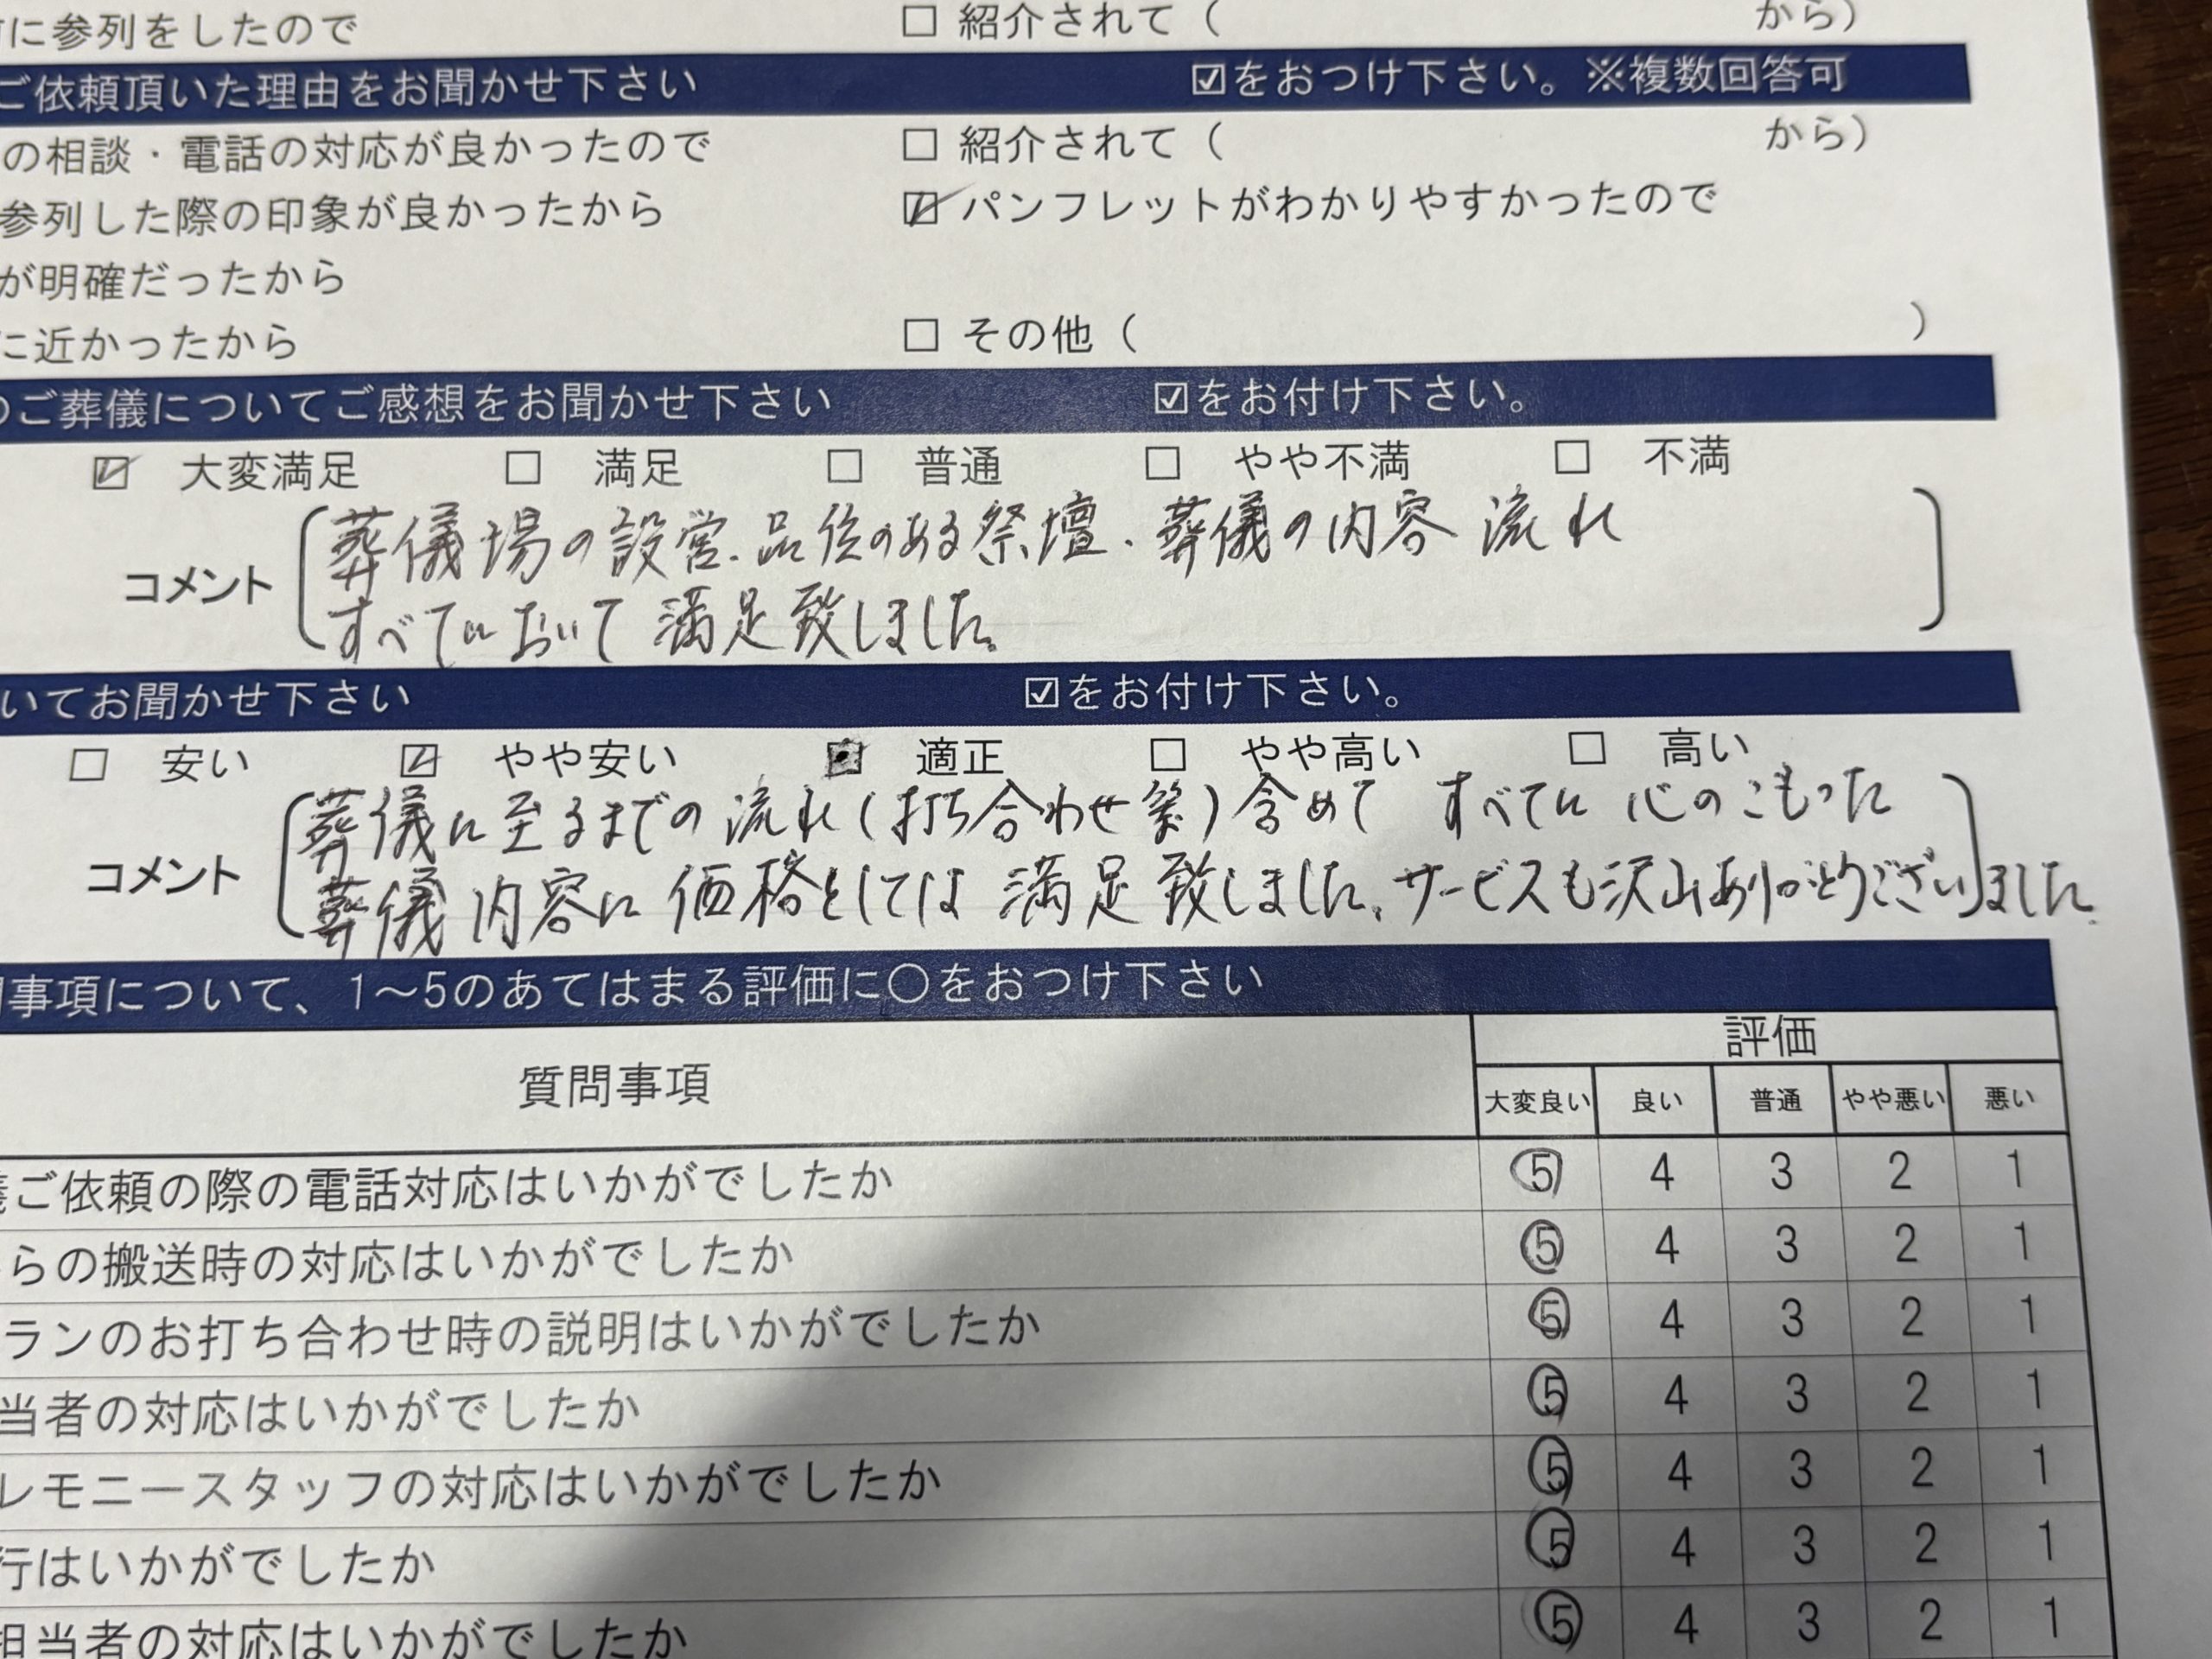 に参列をしたので □ 紹介されて（ から）
ご依頼頂いた理由をお聞かせ下さい ☑をおつけ下さい。※複数回答可
の相談・電話の対応が良かったので □ 紹介されて（ から）
参列した際の印象が良かったから ☑ パンフレットがわかりやすかったので
が明確だったから
に近かったから □ その他（ ）
のご葬儀についてご感想をお聞かせ下さい ☑をお付け下さい。
☑ 大変満足 □ 満足 □ 普通 □ やや不満 □ 不満
葬儀場の設営、品位のある祭壇、葬儀の内容 流れ
コメント
すべてにおいて 満足致しました。
いてお聞かせ下さい ☑をお付け下さい。
□ 安い ☑ やや安い ■ 適正 □ やや高い □ 高い
葬儀に至るまでの 流れ（打ち合わせ等）含めて すべてに 心のこもった
コメント
葬儀内容に 価格としては 満足致しました。サービスも沢山ありがとうございました。
事項について、1～5のあてはまる評価に○をおつけ下さい
評価
質問事項
大変良い 良い 普通 やや悪い 悪い
ご依頼の際の電話対応はいかがでしたか 5 4 3 2 1
らの搬送時の対応はいかがでしたか 5 4 3 2 1
ランのお打ち合わせ時の説明はいかがでしたか 5 4 3 2 1
当者の対応はいかがでしたか 5 4 3 2 1
レモニースタッフの対応はいかがでしたか 5 4 3 2 1
行はいかがでしたか 5 4 3 2 1
担当者の対応はいかがでしたか 5 4 3 2 1